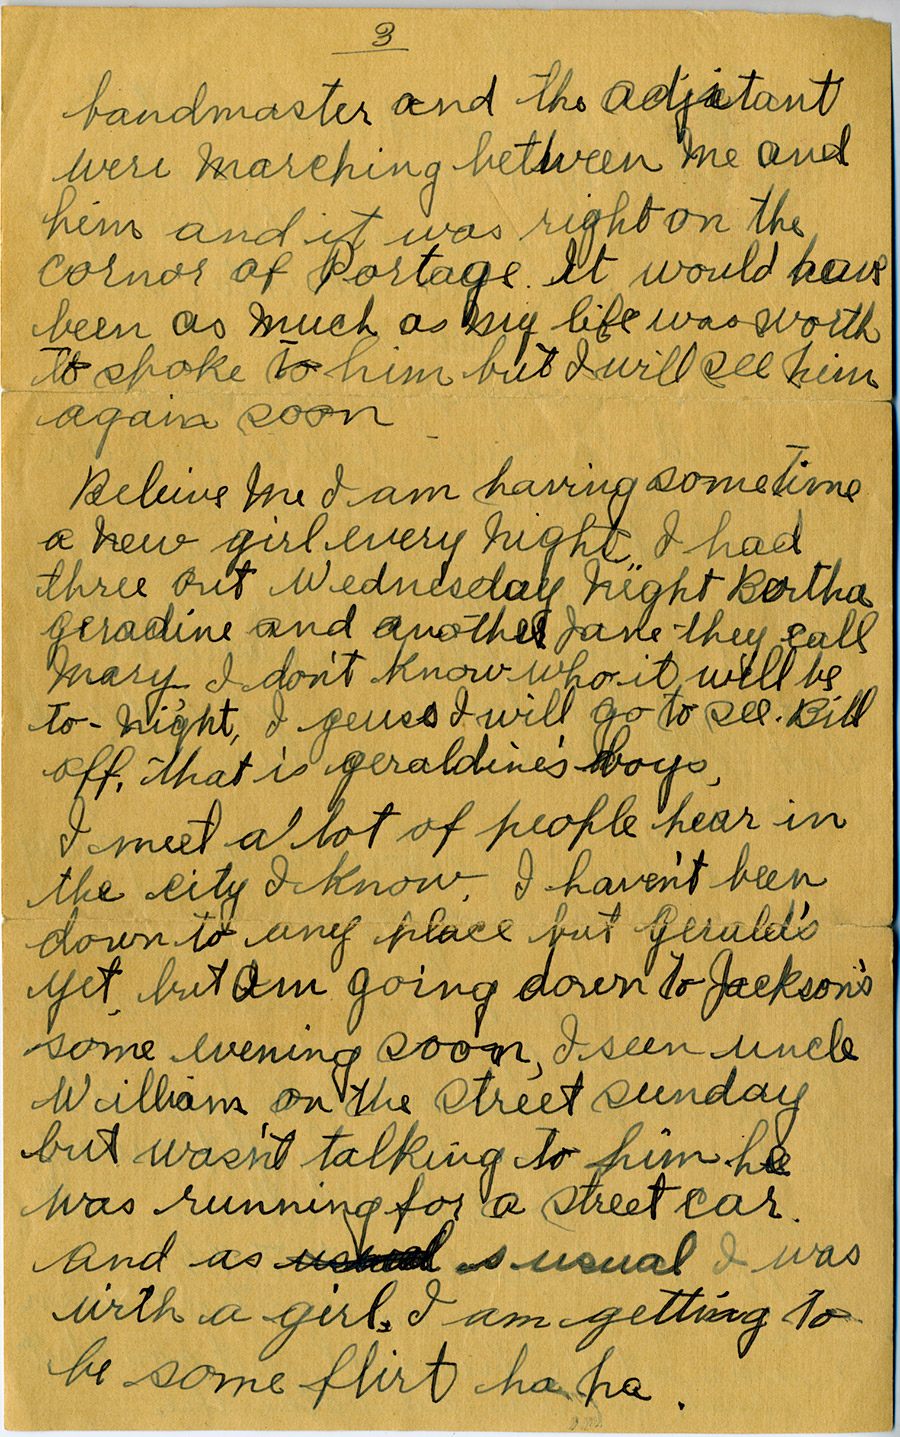 3
bandmaster and the adjatant
were marching between me and
him and it was right on the
cornor of Portage. It would have
been as much as my life was worth
to spoke to him but I will see him
again soon
Beleive me I am having sometime
a new girl every night, I had
three out Wednesday night Bertha
geradine and another Jane they call
Mary I don't know who it will be
to-night, I geuss I will go to see. Bill
off, that is geraldine's boys,
I meet a lot of people hear in
the city I know. I haven't been
down to any place but Gerald's
yet, but Am going down to Jackson's
some evening soon, I seen uncle
William on the street sunday
but wasn't talking to him he
was running for a street car.
and as usual as usual I was
with a girl. I am getting to
be some flirt ha ha.